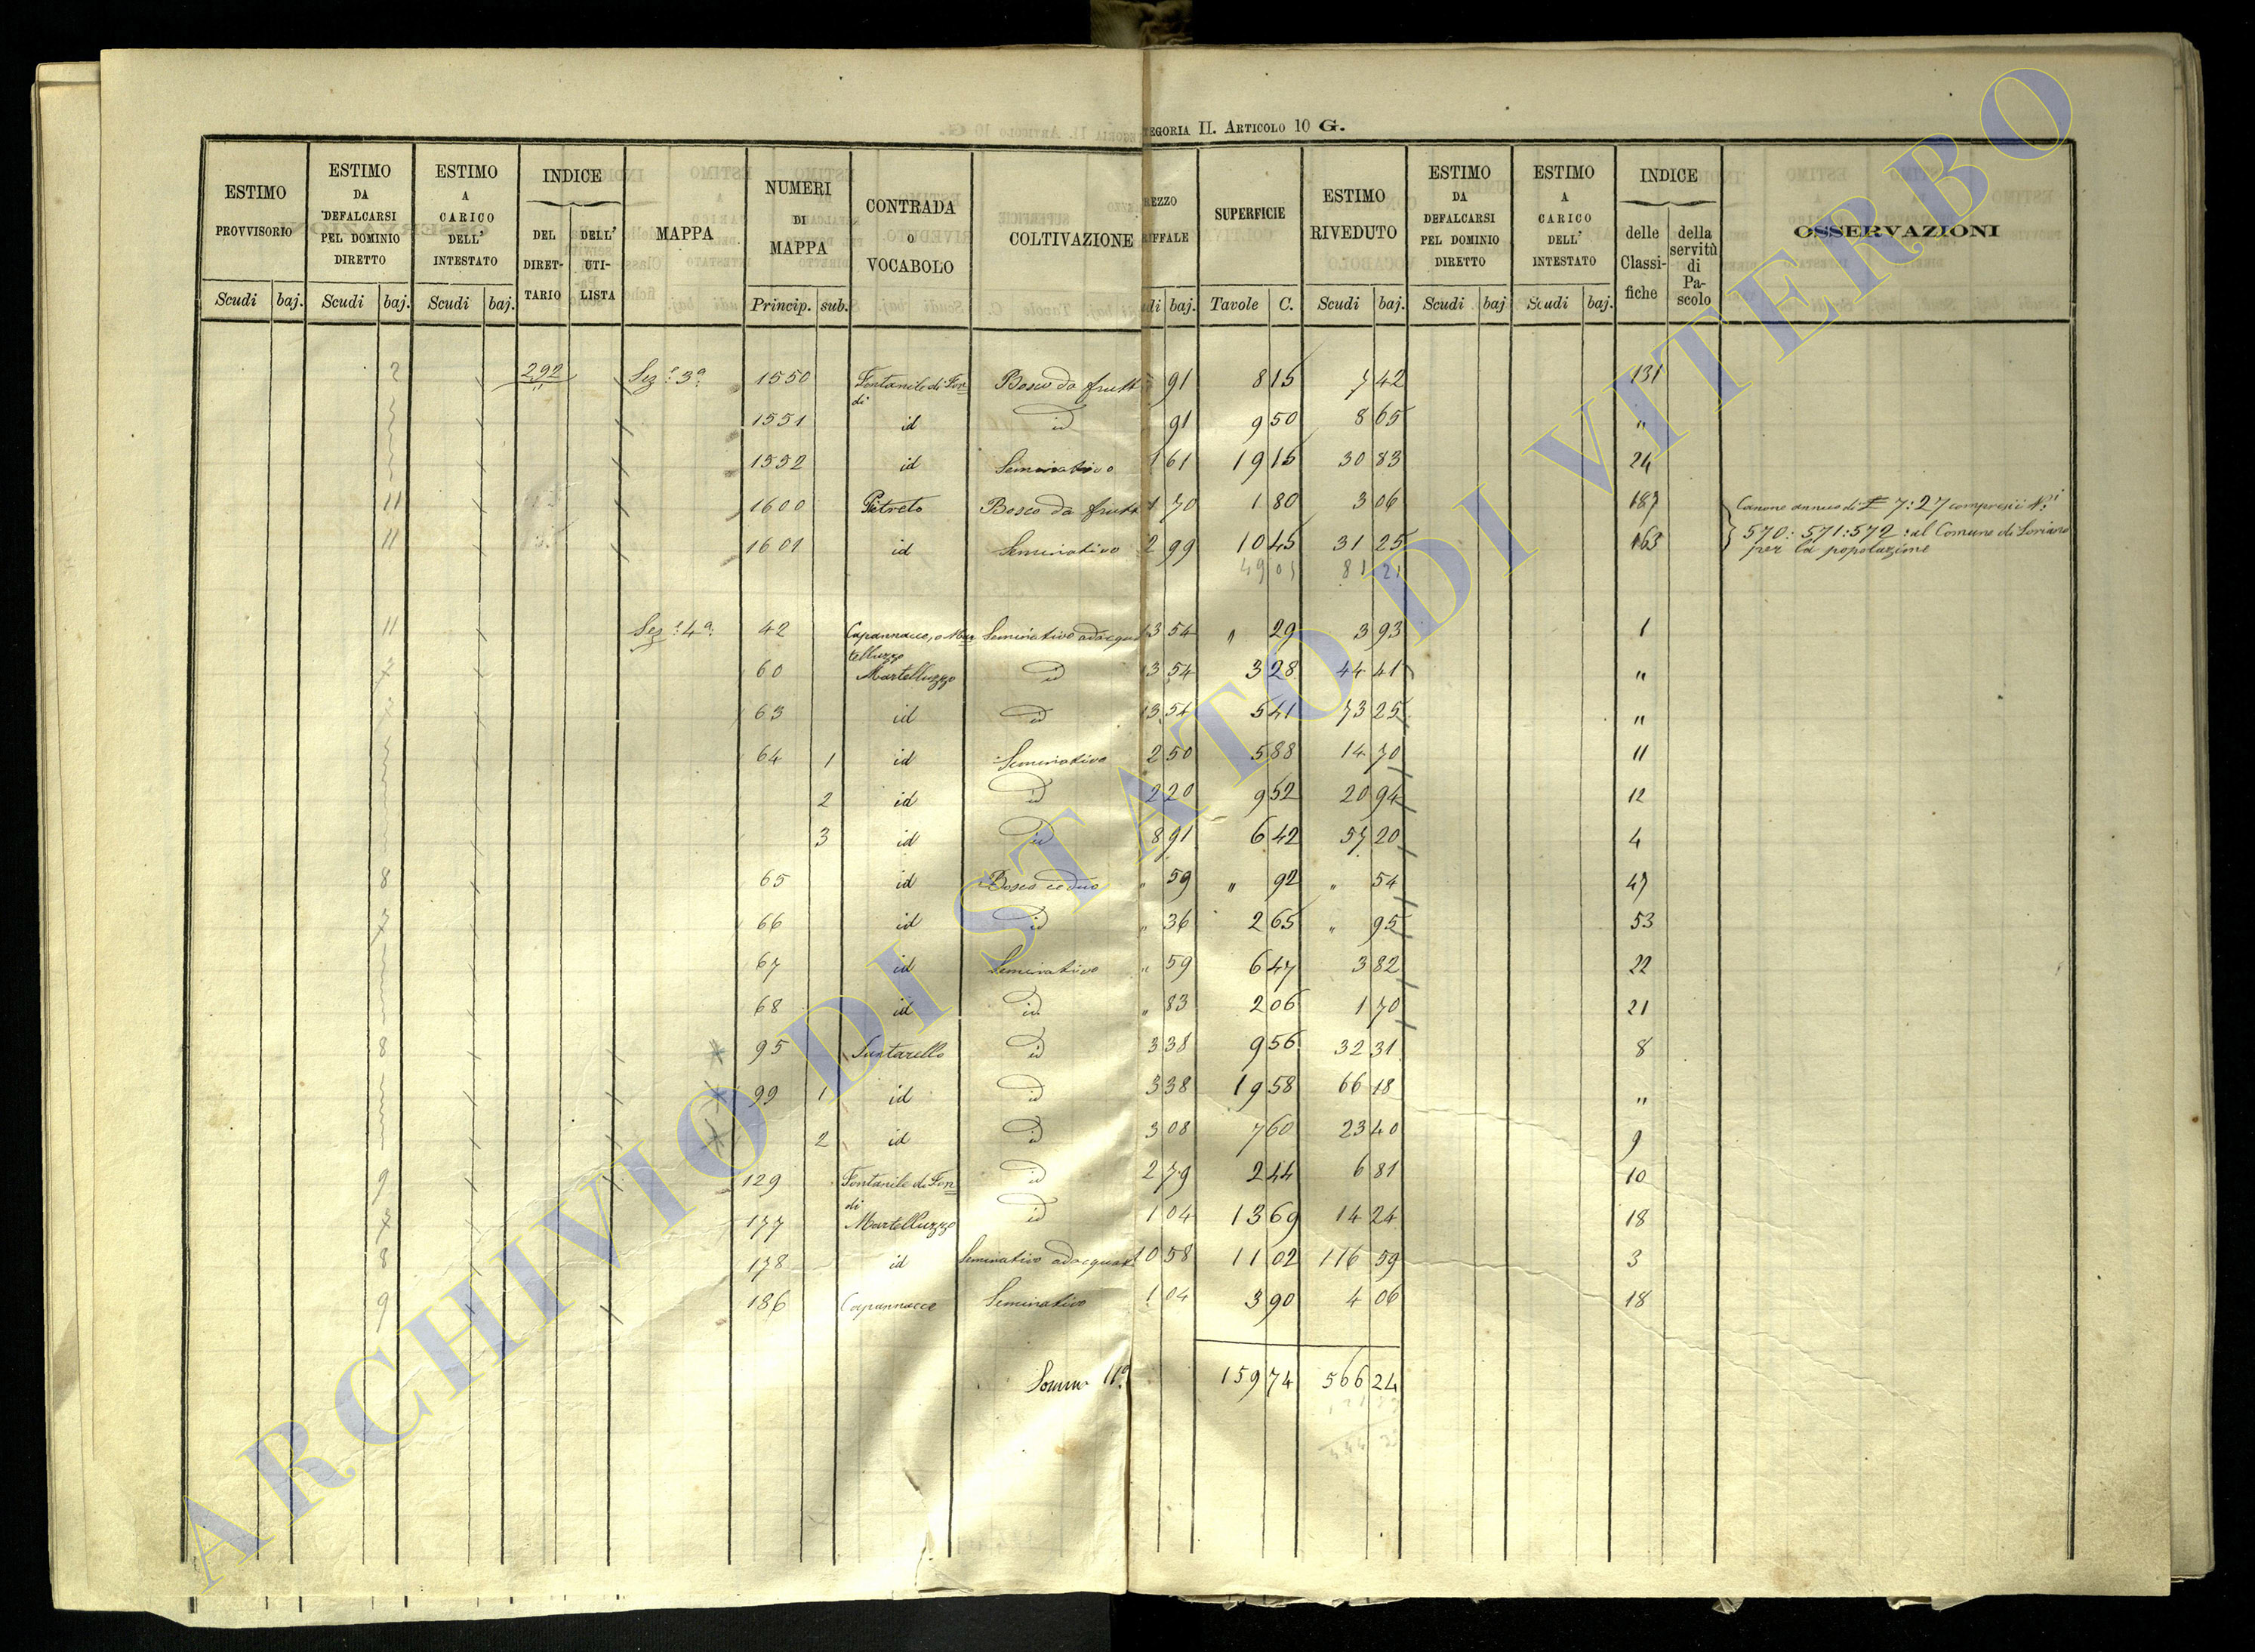 TEGORIA II. ARTICOLO 10 G.
ESTIMO PROVVISORIO | ESTIMO DA DEFALCARSI PEL DOMINIO DIRETTO | ESTIMO A CARICO DELL' INTESTATO | INDICE DEL DIRETTARIO | DELL' UTILISTA | MAPPA | NUMERI DI MAPPA | CONTRADA O VOCABOLO | COLTIVAZIONE | REZZO RIFFALE | SUPERFICIE | ESTIMO RIVEDUTO | ESTIMO DA DEFALCARSI PEL DOMINIO DIRETTO | ESTIMO A CARICO DELL' INTESTATO | INDICE delle Classifiche | della servitù di Pascolo | OSSERVAZIONI
Scudi baj. Scudi baj. Scudi baj. Princip. sub. di baj. Tavole C. Scudi baj. Scudi baj Scudi baj.
2 292 Sez.e 3a 1550 Fontanile di Fondi Bosco da frutt " 91 8 15 7 42 131
1551 id id 91 9 50 8 65 "
1552 id Seminativo 1 61 19 15 30 83 24
11 1600 Pitreto Bosco da frutt 1 70 1 80 3 06 187 Canone annuo di £ 7:27 compresi i N.i
11 1601 id Seminativo 2 99 10 45 31 25 163 570: 571: 572: al Comune di Soriano
per la popolazione
49 05 81 21
11 Sez.e 4a 42 Capannacce, o Martelluzzo Seminativo adacquat 13 54 " 29 3 93 1
7 60 Martelluzzo id 13 54 3 28 44 41 "
63 id id 13 54 5 41 73 25 "
64 1 id Seminativo 2 50 5 88 14 70 11
2 id id 2 20 9 52 20 94 12
3 id id 8 91 6 42 57 20 4
8 65 id Bosco ceduo " 59 " 92 " 54 47
7 66 id id " 36 2 65 " 95 53
67 id Seminativo " 59 6 47 3 82 22
68 id id " 83 2 06 1 70 21
8 95 Santarello id 3 38 9 56 32 31 8
99 1 id id 3 38 19 58 66 18 "
2 id id 3 08 7 60 23 40 9
9 129 Fontanile di Fondi id 2 79 2 44 6 81 10
7 177 Martelluzzo id 1 04 13 69 14 24 18
8 178 id Seminativo adacquat 10 58 11 02 116 59 3
9 186 Capannacce Seminativo 1 04 3 90 4 06 18
Somma 11a 159 74 566 24
ARCHIVIO DI STATO DI VITERBO